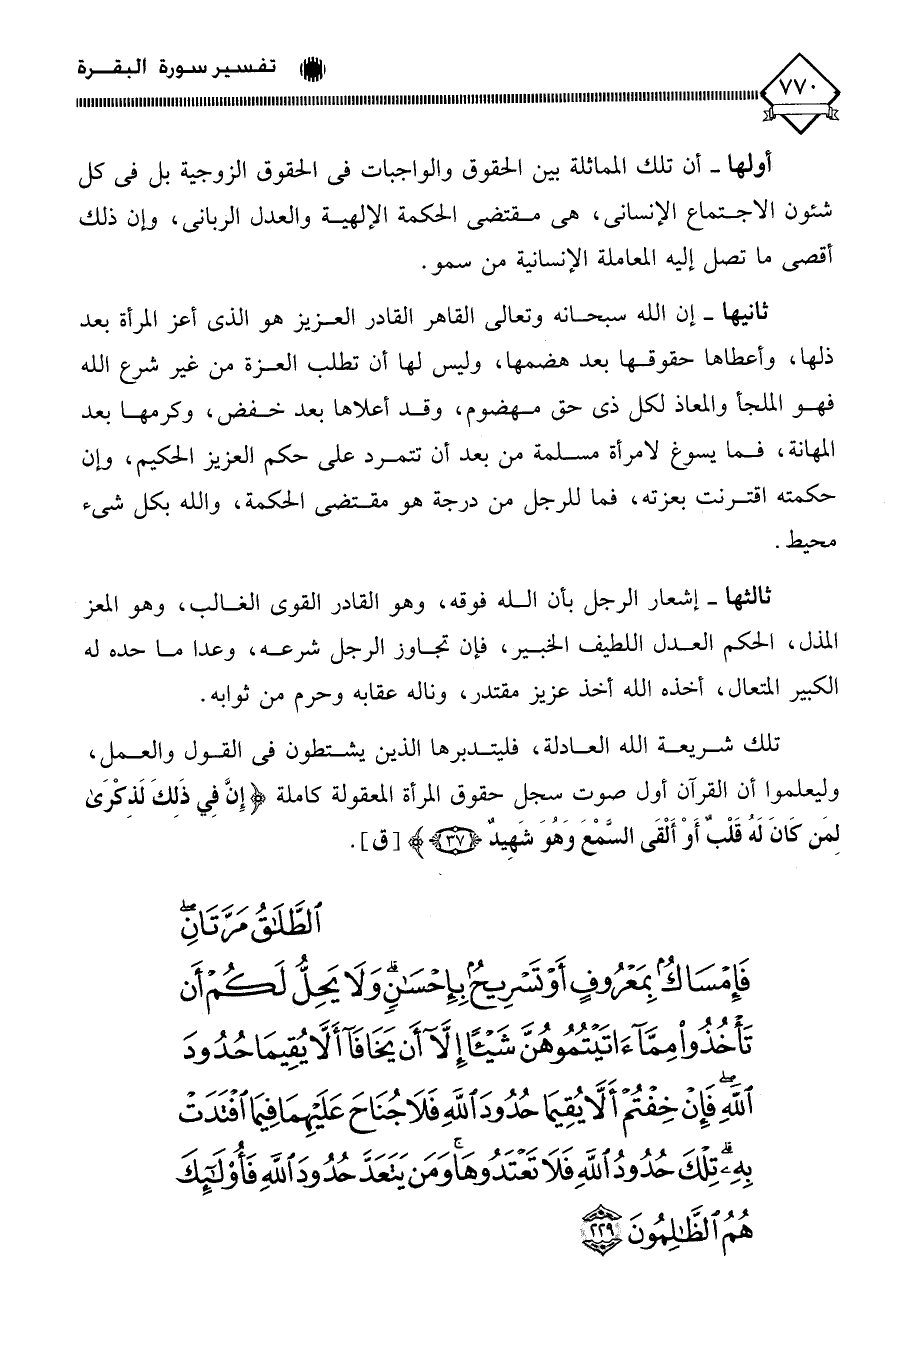 ٧٧٠
تفسير سورة البقرة
أولها ـ أن تلك المماثلة بين الحقوق والواجبات فى الحقوق الزوجية بل فى كل
شئون الاجتماع الإنسانى، هى مقتضى الحكمة الإلهية والعدل الربانى، وإن ذلك
أقصى ما تصل إليه المعاملة الإنسانية من سمو.
ثانيها ـ إن الله سبحانه وتعالى القاهر القادر العزيز هو الذى أعز المرأة بعد
ذلها، وأعطاها حقوقها بعد هضمها، وليس لها أن تطلب العزة من غير شرع الله
فهو الملجأ والمعاذ لكل ذى حق مهضوم، وقد أعلاها بعد خفض، وكرمها بعد
المهانة، فما يسوغ لامرأة مسلمة من بعد أن تتمرد على حكم العزيز الحكيم، وإن
حكمته اقترنت بعزته، فما للرجل من درجة هو مقتضى الحكمة، والله بكل شىء
محيط.
ثالثها ـ إشعار الرجل بأن الله فوقه، وهو القادر القوى الغالب، وهو المعز
المذل، الحكم العدل اللطيف الخبير، فإن تجاوز الرجل شرعه، وعدا ما حده له
الكبير المتعال، أخذه الله أخذ عزيز مقتدر، وناله عقابه وحرم من ثوابه.
تلك شريعة الله العادلة، فليتدبرها الذين يشتطون فى القول والعمل،
وليعلموا أن القرآن أول صوت سجل حقوق المرأة المعقولة كاملة ﴿إِنَّ فِي ذَلِكَ لَذِكْرَىٰ
لِمَن كَانَ لَهُ قَلْبٌ أَوْ أَلْقَى السَّمْعَ وَهُوَ شَهِيدٌ ﴿٣٧﴾﴾ [ق].
ٱلطَّلَٰقُ مَرَّتَانِۖ
فَإِمْسَاكُۢ بِمَعْرُوفٍ أَوْ تَسْرِيحُۢ بِإِحْسَٰنٍۗ وَلَا يَحِلُّ لَكُمْ أَن
تَأْخُذُوا۟ مِمَّآ ءَاتَيْتُمُوهُنَّ شَيْـًٔا إِلَّآ أَن يَخَافَآ أَلَّا يُقِيمَا حُدُودَ
ٱللَّهِۖ فَإِنْ خِفْتُمْ أَلَّا يُقِيمَا حُدُودَ ٱللَّهِ فَلَا جُنَاحَ عَلَيْهِمَا فِيمَا ٱفْتَدَتْ
بِهِۦۗ تِلْكَ حُدُودُ ٱللَّهِ فَلَا تَعْتَدُوهَاۚ وَمَن يَتَعَدَّ حُدُودَ ٱللَّهِ فَأُو۟لَٰٓئِكَ
هُمُ ٱلظَّٰلِمُونَ ﴿٢٢٩﴾